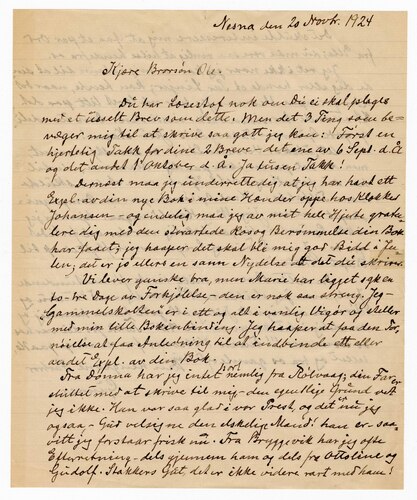 Nesna den 20 Novbr. 1924
Kjære Brorsön Ole.
Du har Læsestof nok om Du ei skal plages
med et usselt Brev som dette. Men det 3 Ting som be-
væger mig til at skrive saa gott jeg kan! Först en
hjertelig Takk for dine 2 Breve - det ene av 6 Sept. d. Å
og det andet 1st Oktober d. Å. Ja tusen Takk!
Dernæst maa jeg underrette dig at jeg har havt ett
Expl. av din nye Bok i mine Hænder oppe hos Klokker
Johansen - og endelig maa jeg av mit hele Hjerte gratu-
lere dig med den storartede Ros og Berömmelse din Bok
har faaet; jeg haaper det skal bli mig god Bidd i Ju-
len, det er jo ellers en sann Nydelse alt det du skriver.
Vi lever ganske bra, men Marie har ligget syk en
to-tre Dage av Forkjölelse - den er nok saa streng. Jeg -
"Gammelskolten" er i ett og alt i vanlig Vigör og steller
med min lille Bokinbinding. Jeg haaper at faa den For-
nöielse at faa Anledning til at indbinde ett eller
andet Expl. av din Bok.
Fra Dönna har jeg intet hört nemlig fra Rölvaag; din Far
sluttet med at skrive til mig - den egentlige Grund vet
jeg ikke. Han var saa glad i vor Prest, og det nu jeg
ogsaa - Gud velsigne den elskelige Mand! han er - saa-
vitt jeg forstaar frisk nu. Fra Bryggevik har jeg ofte
Efterretning - dels gjennem ham og dels fra Ottoline og
Gudolf. Stakkers Gut, det er ikke videre rart med ham!